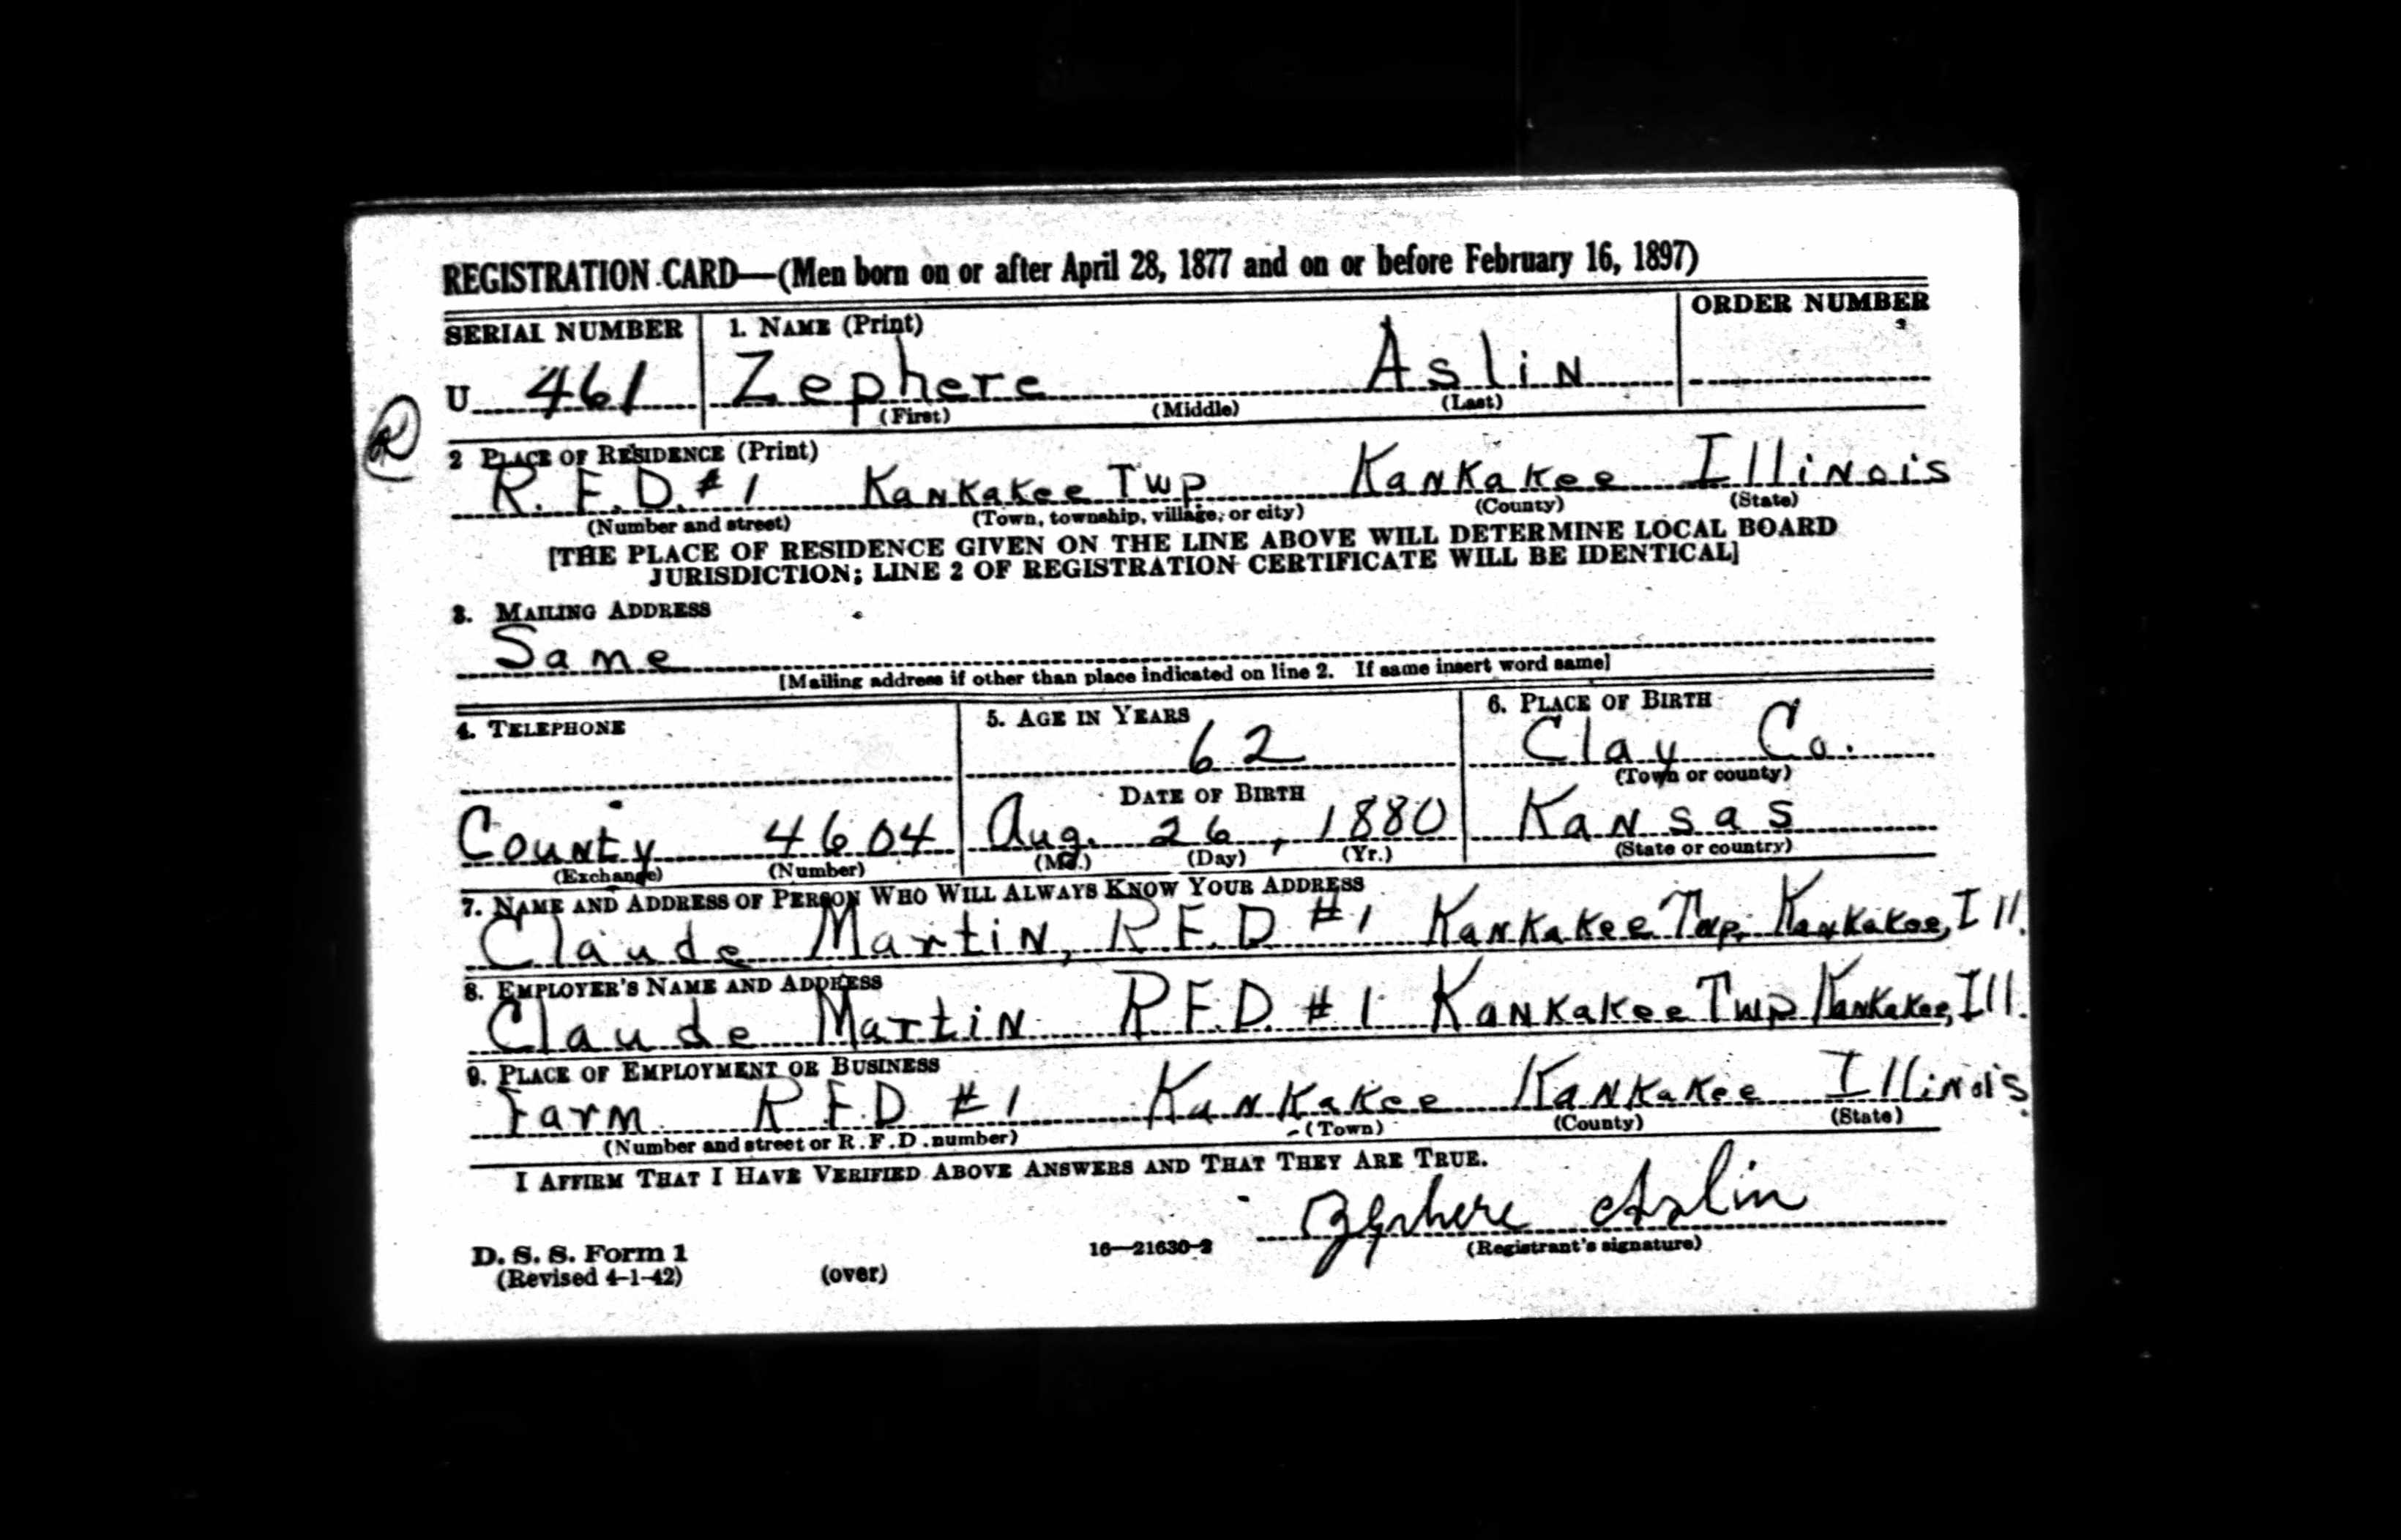 REGISTRATION CARD—(Men born on or after April 28, 1877 and on or before February 16, 1897)
SERIAL NUMBER 1. NAME (Print) ORDER NUMBER
U 461 Zephere Aslin
(First) (Middle) (Last)
R
2 PLACE OF RESIDENCE (Print)
R.F.D. #1 Kankakee Twp Kankakee Illinois
(Number and street) (Town, township, village, or city) (County) (State)
[THE PLACE OF RESIDENCE GIVEN ON THE LINE ABOVE WILL DETERMINE LOCAL BOARD
JURISDICTION; LINE 2 OF REGISTRATION CERTIFICATE WILL BE IDENTICAL]
3. MAILING ADDRESS
Same
[Mailing address if other than place indicated on line 2. If same insert word same]
4. TELEPHONE 5. AGE IN YEARS 6. PLACE OF BIRTH
62 Clay Co.
(Town or county)
DATE OF BIRTH
County 4604 Aug. 26, 1880 Kansas
(Exchange) (Number) (Mo.) (Day) (Yr.) (State or country)
7. NAME AND ADDRESS OF PERSON WHO WILL ALWAYS KNOW YOUR ADDRESS
Claude Martin, R.F.D #1 Kankakee Twp. Kankakee, Ill.
8. EMPLOYER'S NAME AND ADDRESS
Claude Martin R.F.D. #1 Kankakee Twp Kankakee, Ill.
9. PLACE OF EMPLOYMENT OR BUSINESS
Farm R.F.D #1 Kankakee Kankakee Illinois
(Number and street or R.F.D. number) (Town) (County) (State)
I AFFIRM THAT I HAVE VERIFIED ABOVE ANSWERS AND THAT THEY ARE TRUE.
Zephere Aslin
D. S. S. Form 1 16—21630-2 (Registrant's signature)
(Revised 4-1-42) (over)